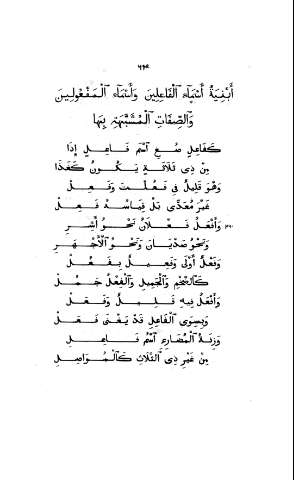 ٦٦٤
أَبْنِيَةُ أَسْمَآءِ ٱلْفَاعِلِينَ وَأَسْمَآءِ ٱلْمَفْعُولِينَ
وَٱلصِّفَاتِ ٱلْمُشَبَّهَةِ بِهَا
كَفَاعِلٍ صُغِ ٱسْمَ فَاعِلٍ إِذَا
مِنْ ذِى ثَلَاثَةٍ يَكُونُ كَغَذَا
وَهْوَ قَلِيلٌ فِى فَعُلْتُ وَفَعِلْ
غَيْرَ مُعَدًّى بَلْ قِيَاسُهُ فَعِلْ
وَأَفْعَلٌ فَعْلَانُ نَحْوُ أَشِرِ
وَنَحْوُ صَدْيَانَ وَنَحْوُ ٱلْأَجْهَرِ
وَفَعْلٌ أَوْلَى وَفَعِيلٌ بِفَعُلْ
كَٱلضَّخْمِ وَٱلْجَمِيلِ وَٱلْفِعْلُ جَمُلْ
وَأَفْعَلٌ فِيهِ قَلِيلٌ وَفَعَلْ
وَبِسِوَى ٱلْفَاعِلِ قَدْ يَغْنَى فَعَلْ
وَزِنَةُ ٱلْمُضَارِعِ ٱسْمُ فَاعِلِ
مِنْ غَيْرِ ذِى ٱلثَّلَاثِ كَٱلْمُوَاصِلِ